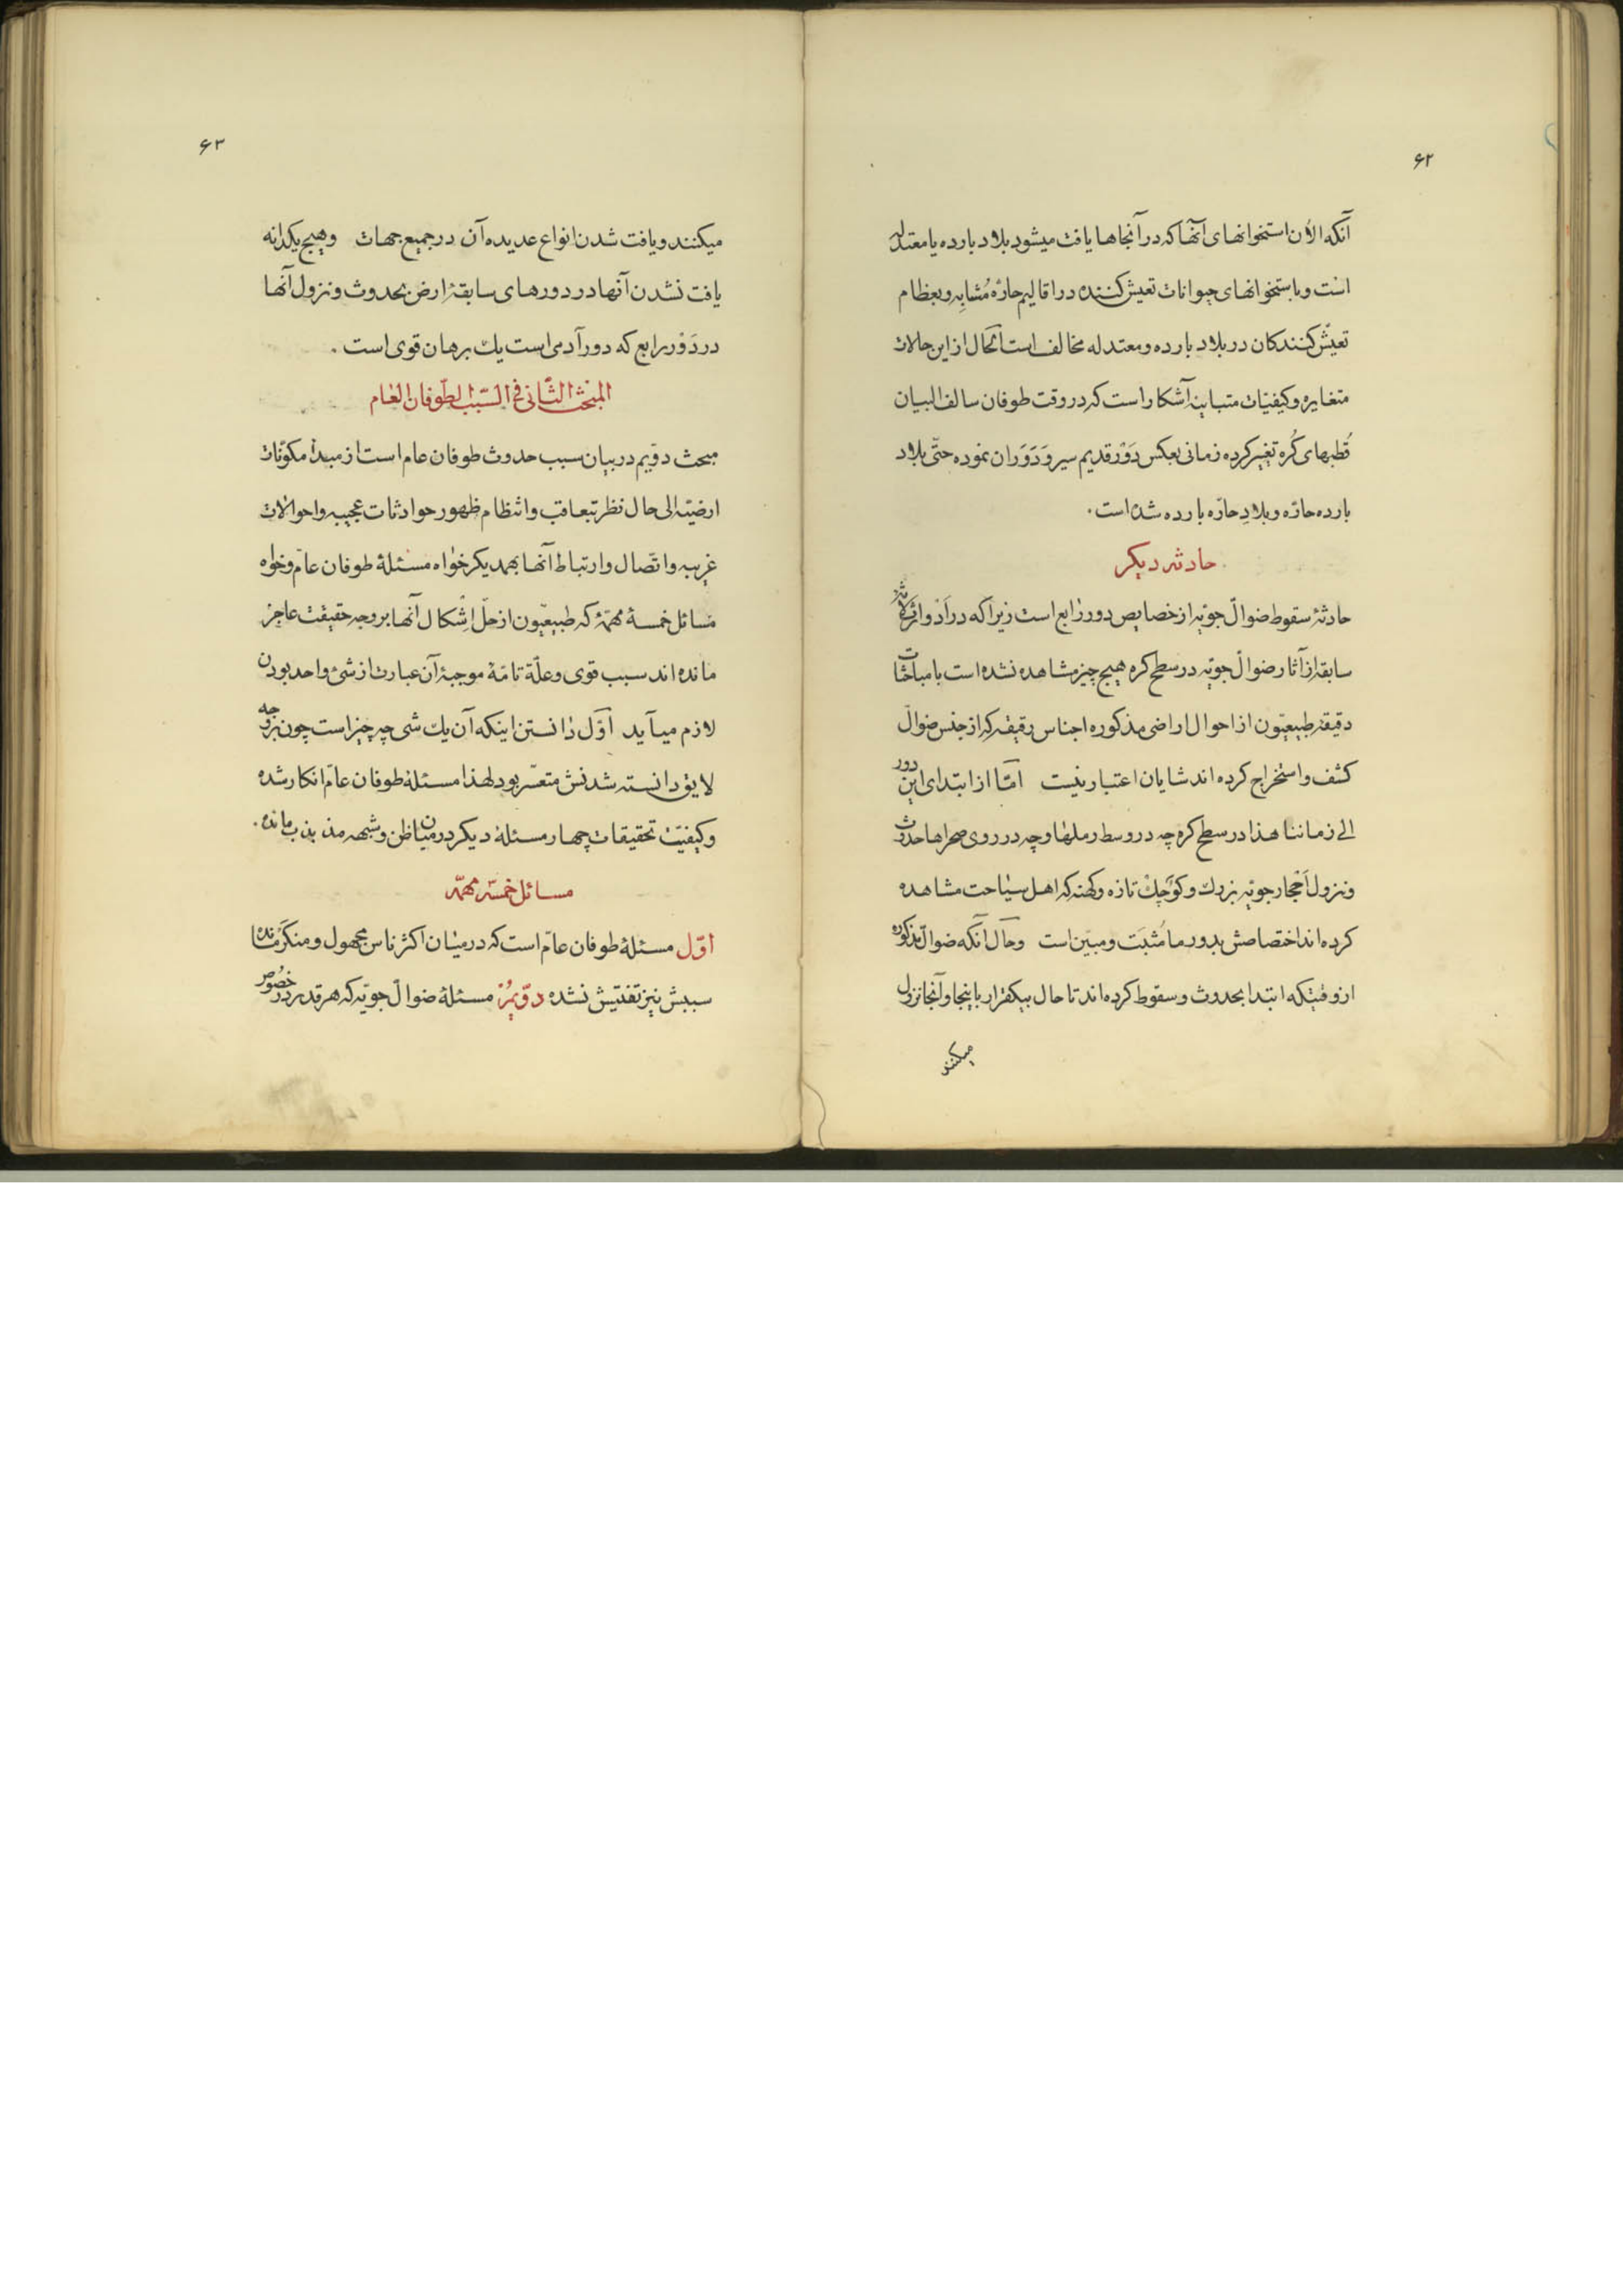 ۶۲
آنکه الآن استخوانهای آنها که در آنجاها یافت میشود بلاد بارده یا معتدله
است و باستخوانهای حیوانات تعیش کننده در اقالیم حارّه مُشابه و بعظام
تعیّش کنندکان در بلاد بارده و معتدله مخالف است الحال از این حالات
متغایره و کیفیّات متباینه آشکار است که در وقت طوفان سالف البیان
قُطبهای کُره تغییر کرده زمانی بعکس دَوْر قدیم سیر و دَوَران نموده حتّی بلاد
بارده حارّه و بلادِ حارّه بارده شده است ۰
حادثه دیکر
حادثهٔ سقوط ضوالّ جوّیه از خصایص دور رابع است زیرا که در اَدْوار ثلاثهٔ
سابقه از آثار ضوالّ جوّیه در سطح کره هیچ چیز مشاهده نشده است با مباحثات
دقیقه طبیعیّون از احوال اراضی مذکوره اجناس رقیقه که از جنس ضوالّ
کشف و استخراج کرده اند شایان اعتبار نیست امّا از ابتدای این دور
الی زماننا هذا در سطح کره چه در وسط رملها و چه در روی صحراها حدوث
و نزول اَحْجار جوّیه بزرك و کوچك تازه و کهنه که اهل سیاحت مشاهده
کرده اند اختصاصش بدور ما مُثبَت و مبیّن است و حال آنکه ضوالّ مذکوره
از وقتیکه ابتدا بحدوث و سقوط کرده اند تا حال بیکقرار باینجا و آنجا نزول
میکنند
۶۳
میکنند و یافت شدن انواع عدیده آن در جمیع جهات و هیچ یکدانه
یافت نشدن آنها در دورهای سابقهٔ ارض بحدوث و نزول آنها
در دَوْر رابع که دور آدمی است یك برهان قوی است ۰
المبحث الثّانی فی السّبب الطّوفان العام
مبحث دوّیم در بیان سبب حدوث طوفان عام است از مبدأ مکوّنات
ارضیّه الی حال نظر بتعاقب و انتظام ظهور حوادثات عجیبه و احوالات
غریبه و اتّصال و ارتباط آنها بهمدیکر خواه مسئلهٔ طوفان عامّ و خواه
مسائل خمسهٔ مهمّهٔ که طبیعیّون از حلّ اِشْکال آنها بر وجه حقیقت عاجز
مانده اند سبب قوی و علّة تامّهٔ موجبهٔ آن عبارت از شئ واحد بودن
لازم میآید اوّل دانستن اینکه آن یك شی چه چیز است چون بر وجه
لایق دانسته شدنش متعسّر بود لهذا مسئلهٔ طوفان عامّ انکار شده
و کیفیّت تحقیقات چهار مسئلهٔ دیکر در میان ظن و شبهه مذبذب مانده ۰
مسائل خمسهٔ مهمّه
اوّل مسئلهٔ طوفان عامّ است که در میان اکثر ناس مجهول و منکَر مانده
سببش نیز تفتیش نشده دوّیمُ مسئلهٔ ضوالّ جوّیه که هر قدر در خُصُوص